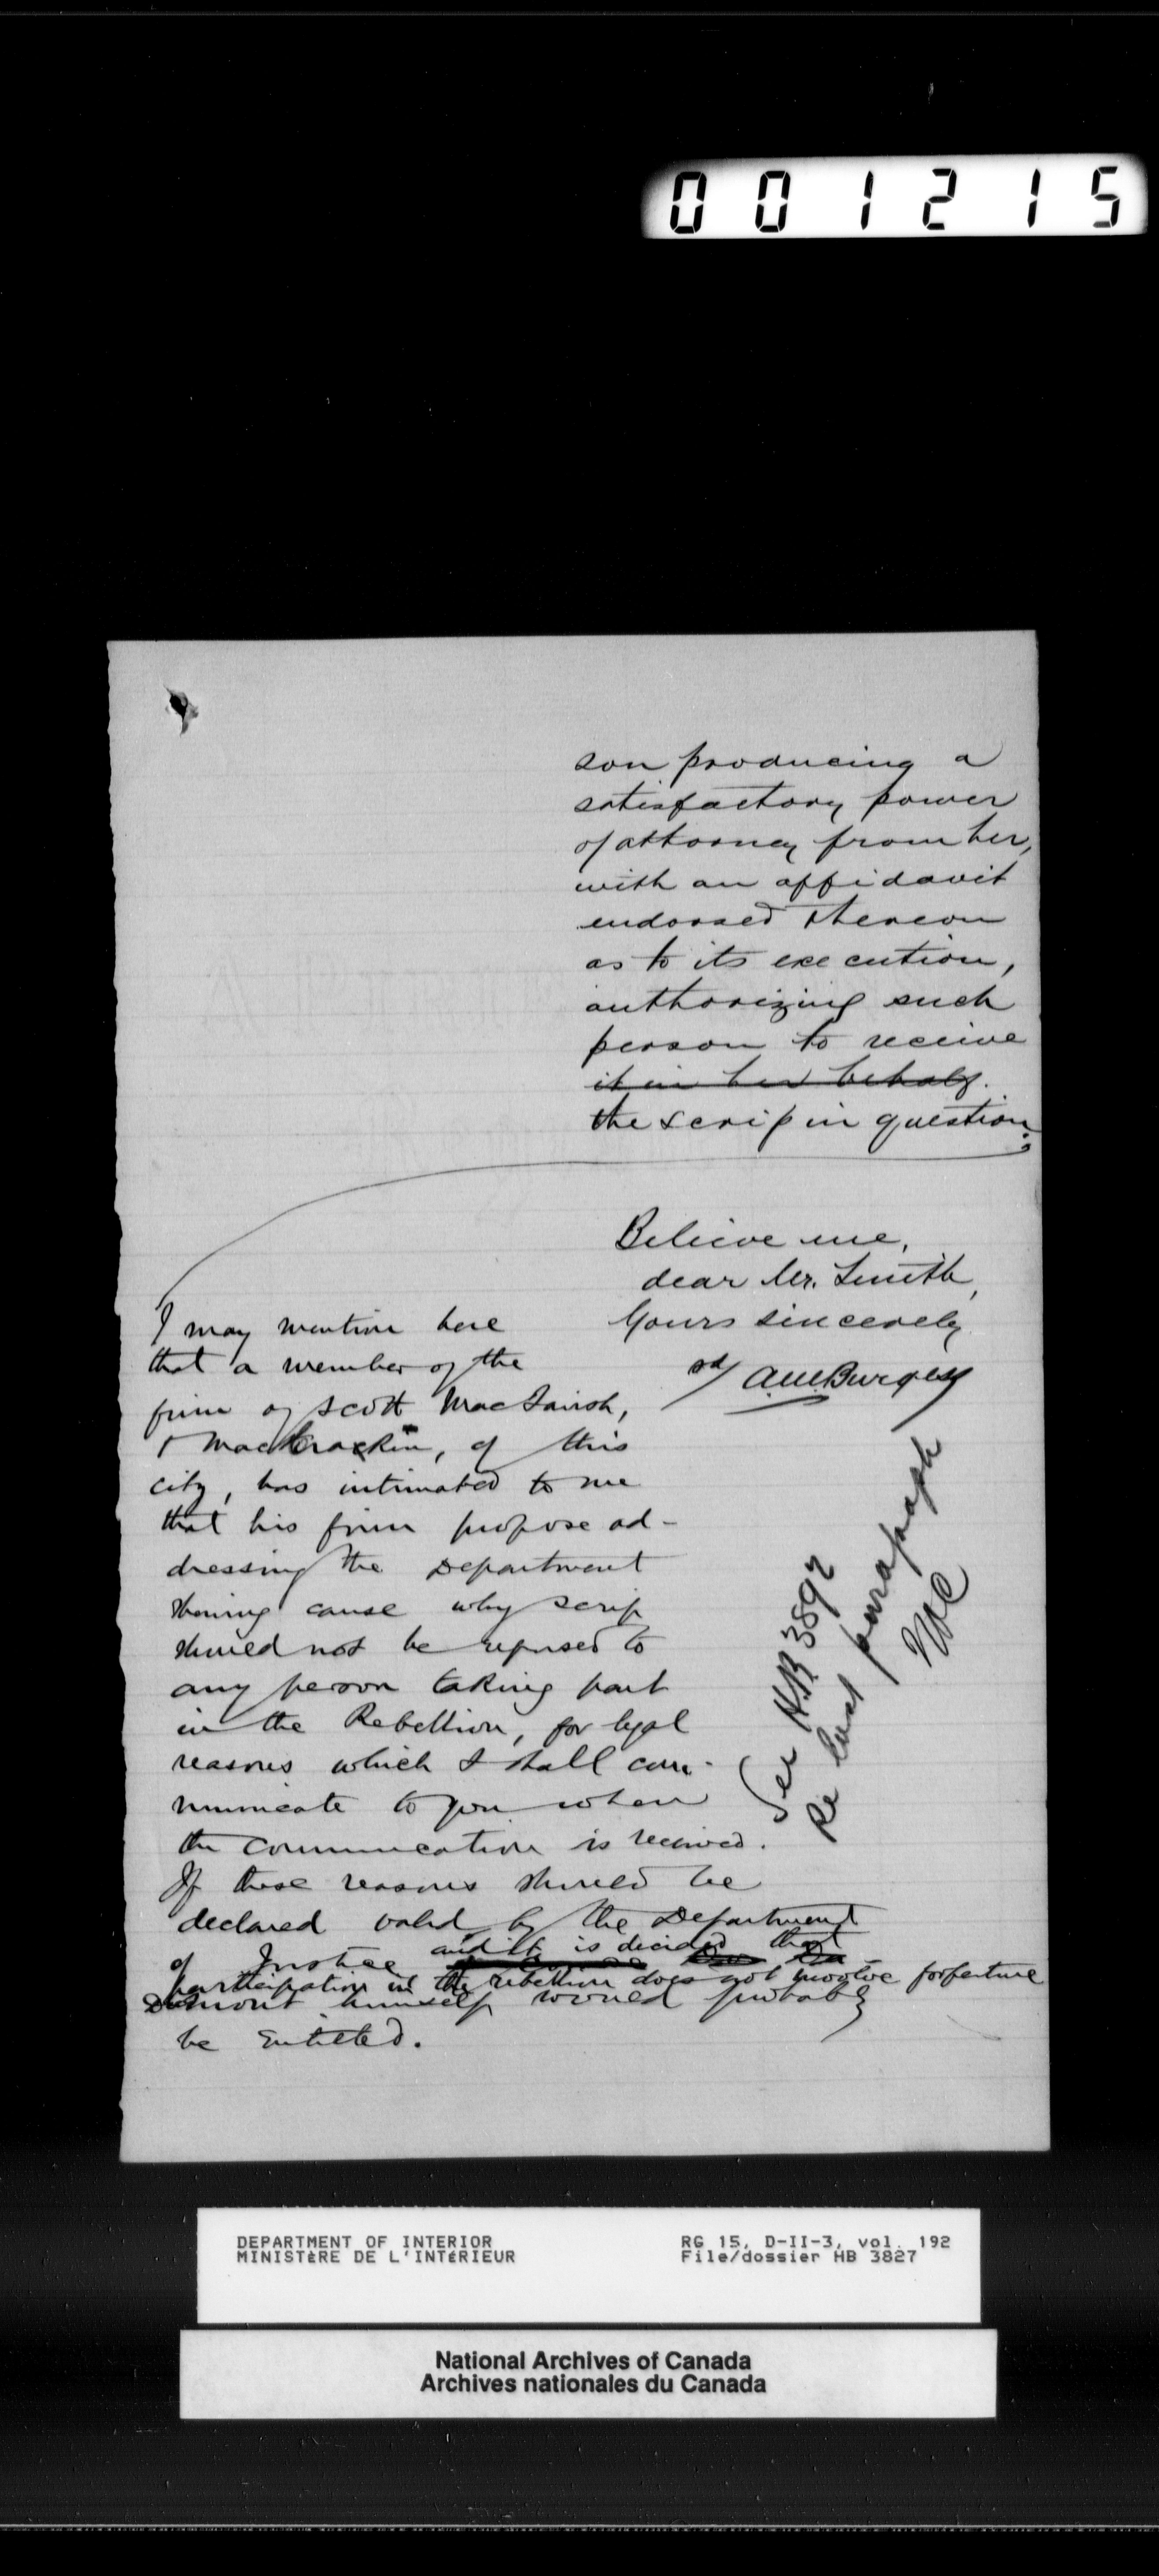 001215
son producing a
satisfactory power
of attorney from her,
with an affidavit
endorsed thereon
as to its execution,
authorizing such
person to receive
it in her behalf.
the scrip in question.
Believe me,
dear Mr. Smith,
Yours sincerely
sd/ A.M. Burgess
I may mention here
that a member of the
firm of Scott MacTavish,
& MacCracken, of this
city, has intimated to me
that his firm propose ad-
dressing the Department
showing cause why scrip
should not be refused to
any person taking part
in the Rebellion, for legal
reasons which I shall com-
municate to you when
the communication is received.
If these reasons should be
declared valid by the Department
of Justice and it is decided that
participation in the rebellion does not involve forfeiture
Dumont himself would probably
be entitled.
See HB 3892
Re last paragraph
DEPARTMENT OF INTERIOR
MINISTÈRE DE L'INTÉRIEUR
RG 15, D-II-3, vol. 192
File/dossier HB 3827
National Archives of Canada
Archives nationales du Canada